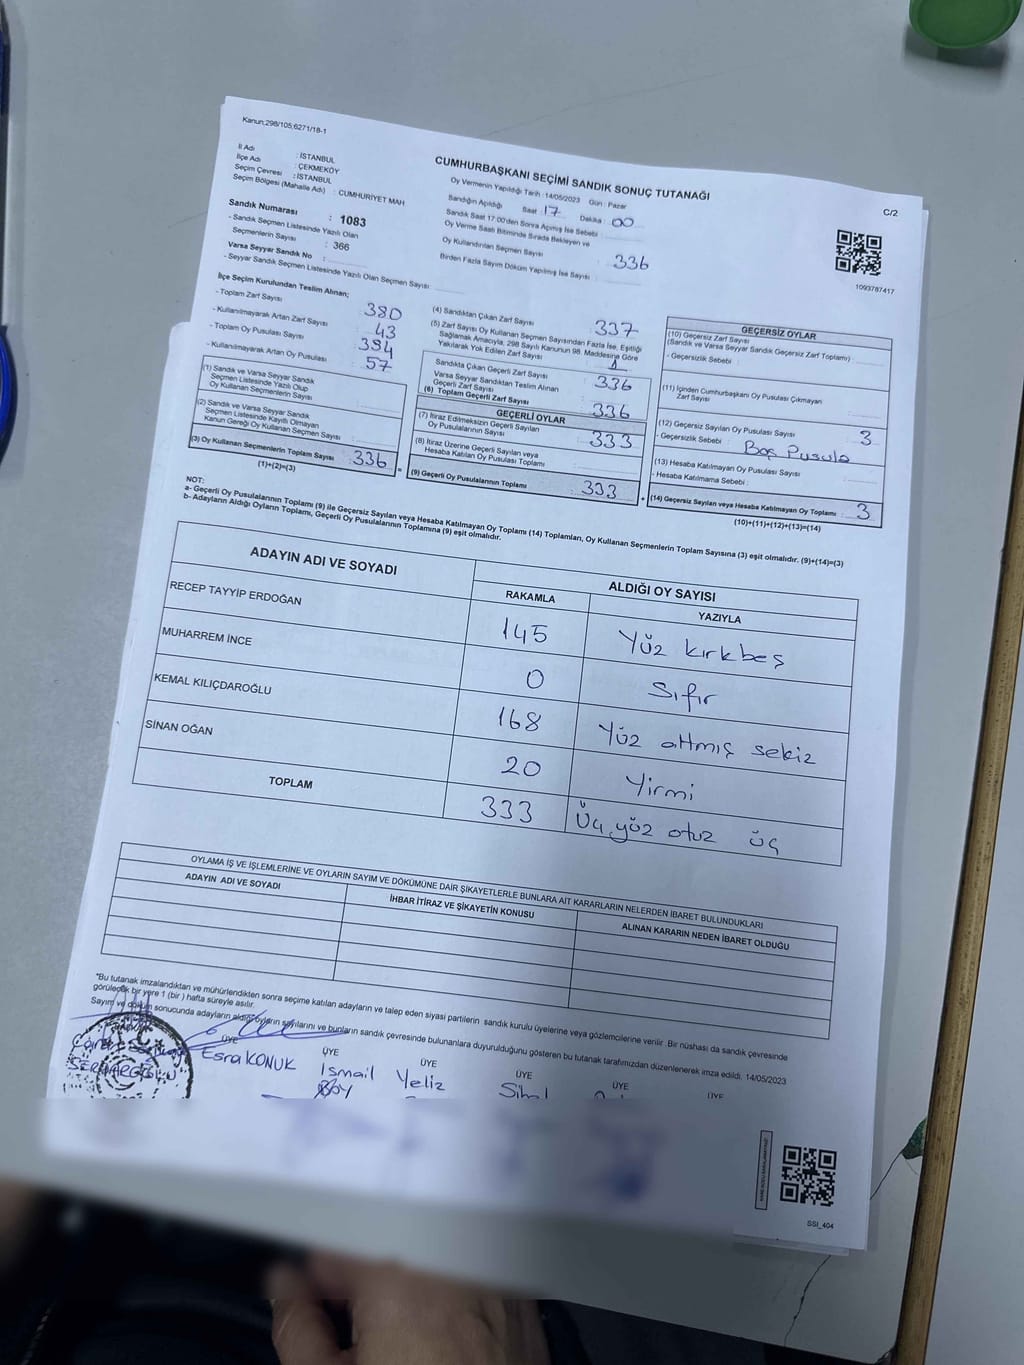 Kanun;298/105;6271/18-1
İl Adı : İSTANBUL
İlçe Adı : ÇEKMEKÖY
Seçim Çevresi : İSTANBUL
Seçim Bölgesi (Mahalle Adı) : CUMHURİYET MAH
Sandık Numarası : 1083
- Sandık Seçmen Listesinde Yazılı Olan
Seçmenlerin Sayısı : 366
Varsa Seyyar Sandık No :
- Seyyar Sandık Seçmen Listesinde Yazılı Olan Seçmen Sayısı:
CUMHURBAŞKANI SEÇİMİ SANDIK SONUÇ TUTANAĞI
Oy Vermenin Yapıldığı Tarih : 14/05/2023 Gün : Pazar
Sandığın Açıldığı Saat : 17 Dakika : 00
Sandık Saat 17:00'den Sonra Açılmış İse Sebebi :
Oy Verme Saati Bitiminde Sırada Bekleyen ve
Oy Kullandırılan Seçmen Sayısı : 336
Birden Fazla Sayım Döküm Yapılmış İse Sayısı :
C/2
1093787417
İlçe Seçim Kurulundan Teslim Alınan;
- Toplam Zarf Sayısı 380
- Kullanılmayarak Artan Zarf Sayısı 43
- Toplam Oy Pusulası Sayısı 394
- Kullanılmayarak Artan Oy Pusulası 57
(1) Sandık ve Varsa Seyyar Sandık
Seçmen Listesinde Yazılı Olup
Oy Kullanan Seçmenlerin Sayısı :
(2) Sandık ve Varsa Seyyar Sandık
Seçmen Listesinde Kayıtlı Olmayan
Kanun Gereği Oy Kullanan Seçmen Sayısı :
(3) Oy Kullanan Seçmenlerin Toplam Sayısı : 336
(1)+(2)=(3)
(4) Sandıktan Çıkan Zarf Sayısı : 337
(5) Zarf Sayısı Oy Kullanan Seçmen Sayısından Fazla İse, Eşitliği
Sağlamak Amacıyla, 298 Sayılı Kanunun 98. Maddesine Göre
Yakılarak Yok Edilen Zarf Sayısı : 1
Sandıkta Çıkan Geçerli Zarf Sayısı : 336
Varsa Seyyar Sandıktan Teslim Alınan
Geçerli Zarf Sayısı :
(6) Toplam Geçerli Zarf Sayısı : 336
GEÇERLİ OYLAR
(7) İtiraz Edilmeksizin Geçerli Sayılan
Oy Pusulalarının Sayısı : 333
(8) İtiraz Üzerine Geçerli Sayılan veya
Hesaba Katılan Oy Pusulası Toplamı :
(9) Geçerli Oy Pusulalarının Toplamı : 333
GEÇERSİZ OYLAR
(10) Geçersiz Zarf Sayısı
(Sandık ve Varsa Seyyar Sandık Geçersiz Zarf Toplamı) :
- Geçersizlik Sebebi :
(11) İçinden Cumhurbaşkanı Oy Pusulası Çıkmayan
Zarf Sayısı :
(12) Geçersiz Sayılan Oy Pusulası Sayısı : 3
- Geçersizlik Sebebi : Boş Pusula
(13) Hesaba Katılmayan Oy Pusulası Sayısı :
- Hesaba Katılmama Sebebi :
(14) Geçersiz Sayılan veya Hesaba Katılmayan Oy Toplamı : 3
(10)+(11)+(12)+(13)=(14)
NOT:
a- Geçerli Oy Pusulalarının Toplamı (9) ile Geçersiz Sayılan veya Hesaba Katılmayan Oy Toplamı (14) Toplamları, Oy Kullanan Seçmenlerin Toplam Sayısına (3) eşit olmalıdır. (9)+(14)=(3)
b- Adayların Aldığı Oyların Toplamı, Geçerli Oy Pusulalarının Toplamına (9) eşit olmalıdır.
ADAYIN ADI VE SOYADI
ALDIĞI OY SAYISI
RAKAMLA YAZIYLA
RECEP TAYYİP ERDOĞAN 145 Yüz kırkbeş
MUHARREM İNCE 0 Sıfır
KEMAL KILIÇDAROĞLU 168 Yüz altmış sekiz
SİNAN OĞAN 20 Yirmi
TOPLAM 333 Üç yüz otuz üç
OYLAMA İŞ VE İŞLEMLERİNE VE OYLARIN SAYIM VE DÖKÜMÜNE DAİR ŞİKAYETLERLE BUNLARA AİT KARARLARIN NELERDEN İBARET BULUNDUKLARI
ADAYIN ADI VE SOYADI İHBAR İTİRAZ VE ŞİKAYETİN KONUSU ALINAN KARARIN NEDEN İBARET OLDUĞU
*Bu tutanak imzalandıktan ve mühürlendikten sonra seçime katılan adayların ve talep eden siyasi partilerin sandık kurulu üyelerine veya gözlemcilerine verilir. Bir nüshası da sandık çevresinde
görülecek bir yere 1 (bir) hafta süreyle asılır.
Sayım ve döküm sonucunda adayların aldığı oyların sayılarını ve bunların sandık çevresinde bulunanlara duyurulduğunu gösteren bu tutanak tarafımızdan düzenlenerek imza edildi. 14/05/2023
ÜYE ÜYE ÜYE ÜYE ÜYE ÜYE
SERDAROĞLU Esra KONUK İsmail Yeliz
SSI_404